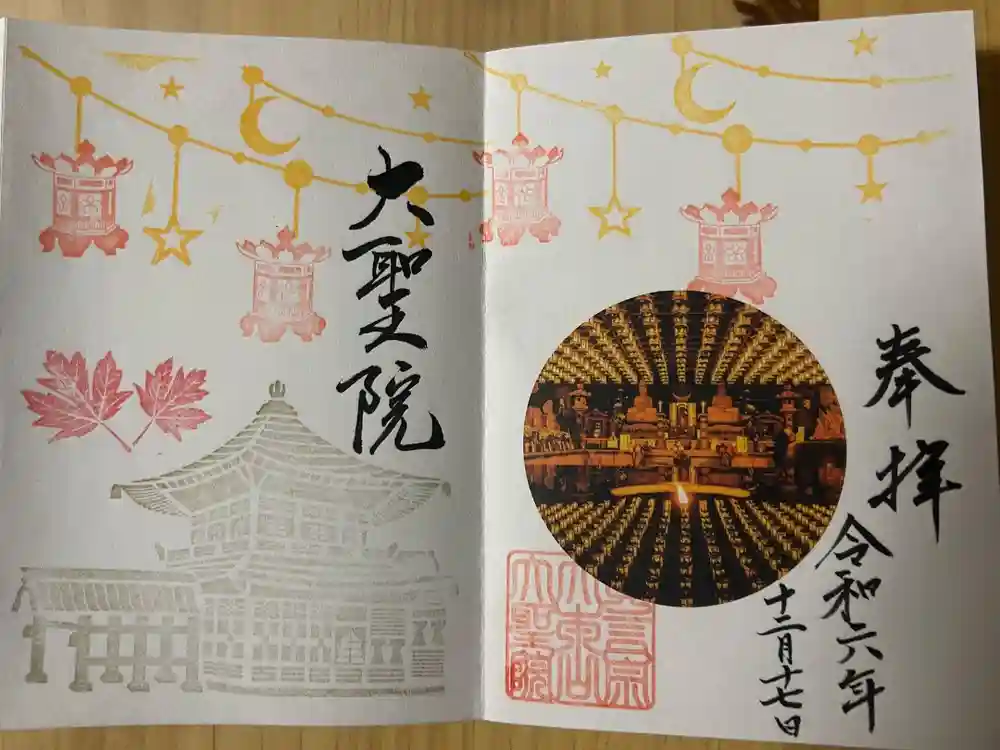 奉拝
令和六年
十二月十七日
大聖院
真言宗
大本山
大聖院